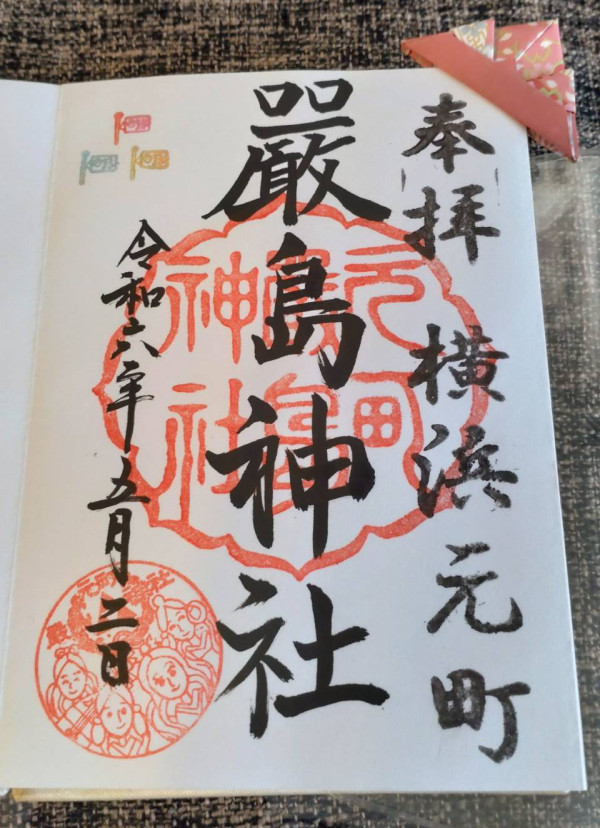 奉拝 横浜元町
嚴島神社
令和六年五月二日
元町
神社